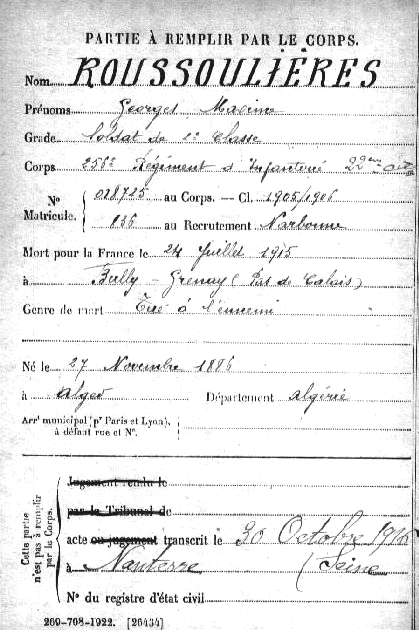 PARTIE À REMPLIR PAR LE CORPS.
Nom ROUSSOULIÈRES
Prénoms Georges Maxime
Grade Soldat de 2e Classe
Corps 256e Régiment d'Infanterie 22ème
No Matricule. 018725 au Corps. — Cl. 1905/1906
836 au Recrutement Narbonne
Mort pour la France le 24 Juillet 1915
à Bully - Grenay (Pas de Calais)
Genre de mort Tué à l'ennemi
Né le 27 Novembre 1886
à Alger Département Algérie
Arrt municipal (pr Paris et Lyon),
à défaut rue et No.
Cette partie n'est pas à remplir par le Corps.
Jugement rendu le
par le Tribunal de
acte ou jugement transcrit le 30 Octobre
à Nanterre (Seine
No du registre d'état civil
269-708-1922. [26434]